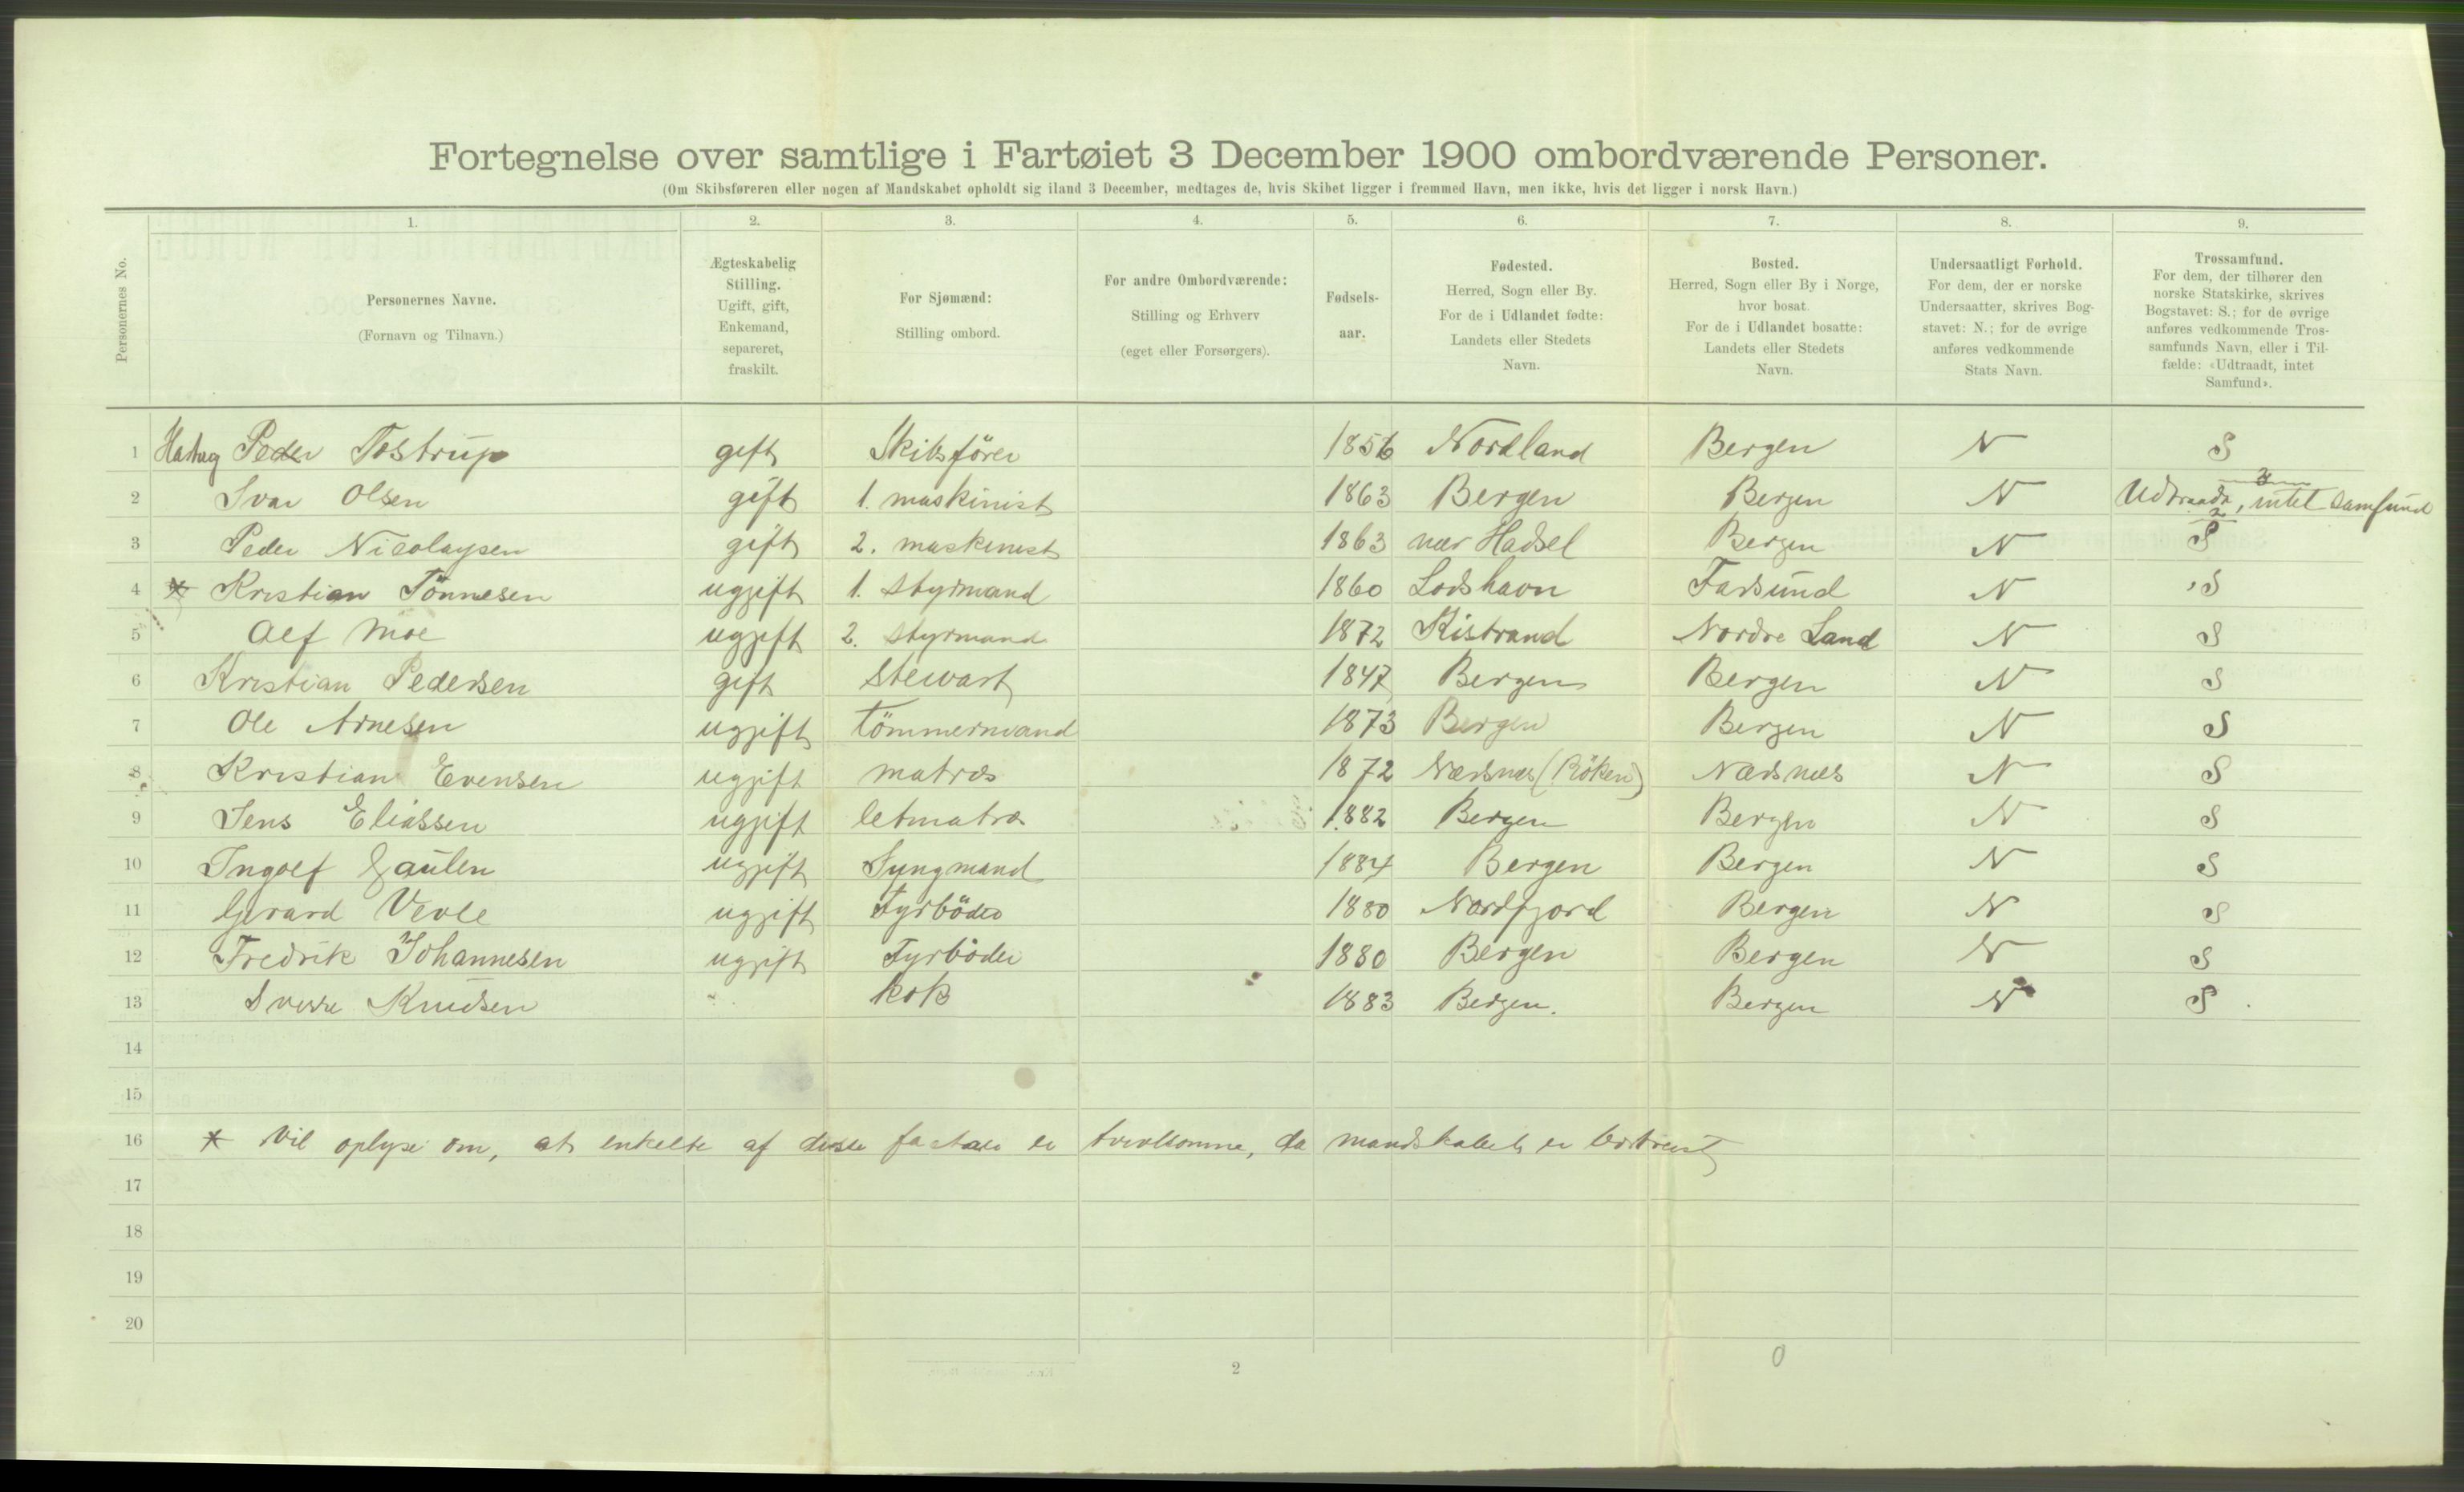 Fortegnelse over samtlige i Fartøiet 3 December 1900 ombordværende Personer.
(Om Skibsføreren eller nogen af Mandskabet opholdt sig iland 3 December, medtages de, hvis Skibet ligger i fremmed Havn, men ikke, hvis det ligger i norsk Havn.)
Personernes No.
1. 2. 3. 4. 5. 6. 7. 8. 9.
Personernes Navne.
(Fornavn og Tilnavn.)
Ægteskabelig
Stilling.
Ugift, gift,
Enkemand,
separeret,
fraskilt.
For Sjømænd:
Stilling ombord.
For andre Ombordværende:
Stilling og Erhverv
(eget eller Forsørgers).
Fødsels-
aar.
Fødested.
Herred, Sogn eller By.
For de i Udlandet fødte:
Landets eller Stedets
Navn.
Bosted.
Herred, Sogn eller By i Norge,
hvor bosat.
For de i Udlandet bosatte:
Landets eller Stedets
Navn.
Undersaatligt Forhold.
For dem, der er norske
Undersaatter, skrives Bog-
stavet: N.; for de øvrige
anføres vedkommende
Stats Navn.
Trossamfund.
For dem, der tilhører den
norske Statskirke, skrives
Bogstavet: S.; for de øvrige
anføres vedkommende Tros-
samfunds Navn, eller i Til-
fælde: «Udtraadt, intet
Samfund».
1 Peder Tostrup gift Skibsförer 1856 Nordland Bergen N S
2 Ivar Olsen gift 1. maskinist 1863 Bergen Bergen N Udtraadt, intet samfund
3 Peder Nicolaysen gift 2. maskinist 1863 nær Hadsel Bergen N S
4 * Kristian Tönnesen ugjift 1. styrmand 1860 Loshavn Farsund N S
5 Alf Moe ugjift 2. styrmand 1872 Kistrand Nordre Land N S
6 Kristian Pedersen gift stewart 1847 Bergen Bergen N S
7 Ole Arnesen ugjift tömmermand 1873 Bergen Bergen N S
8 Kristian Evensen ugjift matros 1872 Nærsnæs (Röken) Nærsnæs N S
9 Jens Eliassen ugjift letmatros 1882 Bergen Bergen N S
10 Ingolf Gaulen ugjift Jungmand 1884 Bergen Bergen N S
11 Gerard Vevle ugjift Fyrböder 1880 Nordfjord Bergen N S
12 Fredrik Johannesen ugjift Fyrböder 1880 Bergen Bergen N S
13 Sverre Knudsen kok 1883 Bergen. Bergen N S
14
15
16 * Vil oplyse om, at enkelte af disse er tvivlsomme, da mandskabet er bortreist
17
18
19
20
2
0